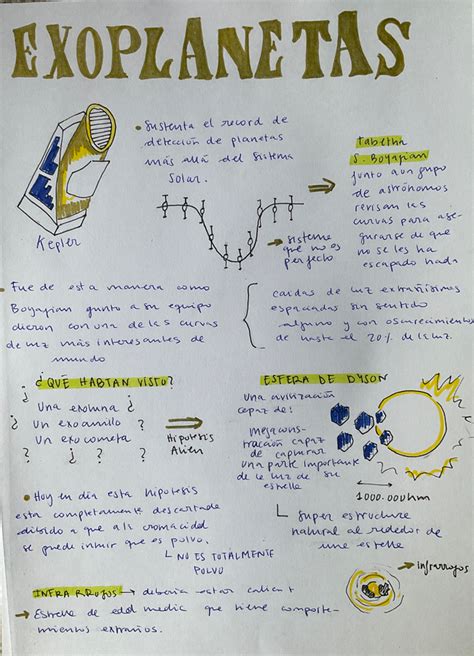 EXOPLANETAS
• Sustenta el record de
detección de planetas
más allá del sistema
solar.
Kepler
→ sistema
que no es
perfecto
Tabetha
S. Boyajian
junto a un grupo
de astrónomos
revisan las
curvas para ase-
gurarse de que
no se les ha
escapado nada
• Fue de esta manera como
Boyajian junto a su equipo
dieron con una de las curvas
de luz más interesantes de
mundo
caidas de luz extrañísimas
espaciadas sin sentido
alguno y con oscurecimientos
de hasta el 20% de la luz.
¿QUÉ HABÍAN VISTO?
¿ Una exoluna ¿
Un exoanillo ?
¿ Un exocometa ?
? ¿ ? ?
Hipotesis
Alien
ESFERA DE DYSON
Una civilización
capaz de:
megacons-
tracción capaz
de capturar
una parte importante
de la luz de su
estrella
1000.000km
super estructure
natural alrededor de
une estrella
• Hoy en día esta hipotesis
esta completamente descartada
debido a que a la cromacidad
se puede inhuir que es polvo.
NO ES TOTALMENTE
POLVO
→ infrarrojos
INFRARROJOS → debería estar calient
→ Estrella de edad media que tiene comporta-
mientos extraños.